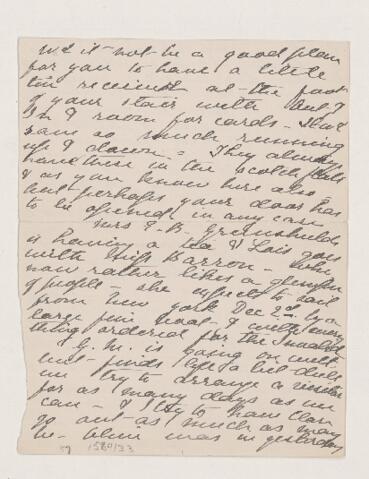 wd it not be a good plan
for you to have a little
tin receiver at the foot
of your stair with Out &
In & room for cards - That
save so much running
up & down - They always
have these in the Scotch flats
& as you know here also
but perhaps your door has
to be opened in any case
Mrs E. B. Greenshields
is having a tea & Lois goes
with Miss Barron - who
now rather likes a glimpse
of people - she expects to sail
from New York Dec 2nd by a
large fine boat - & with every
thing ordered for the
G. M. is going on well
but finds life a bit dull
we try to arrange a visitor
for as many days as we
can - & I try to have Clare
go out as much as may
be - was in yesterday
59 1580/33